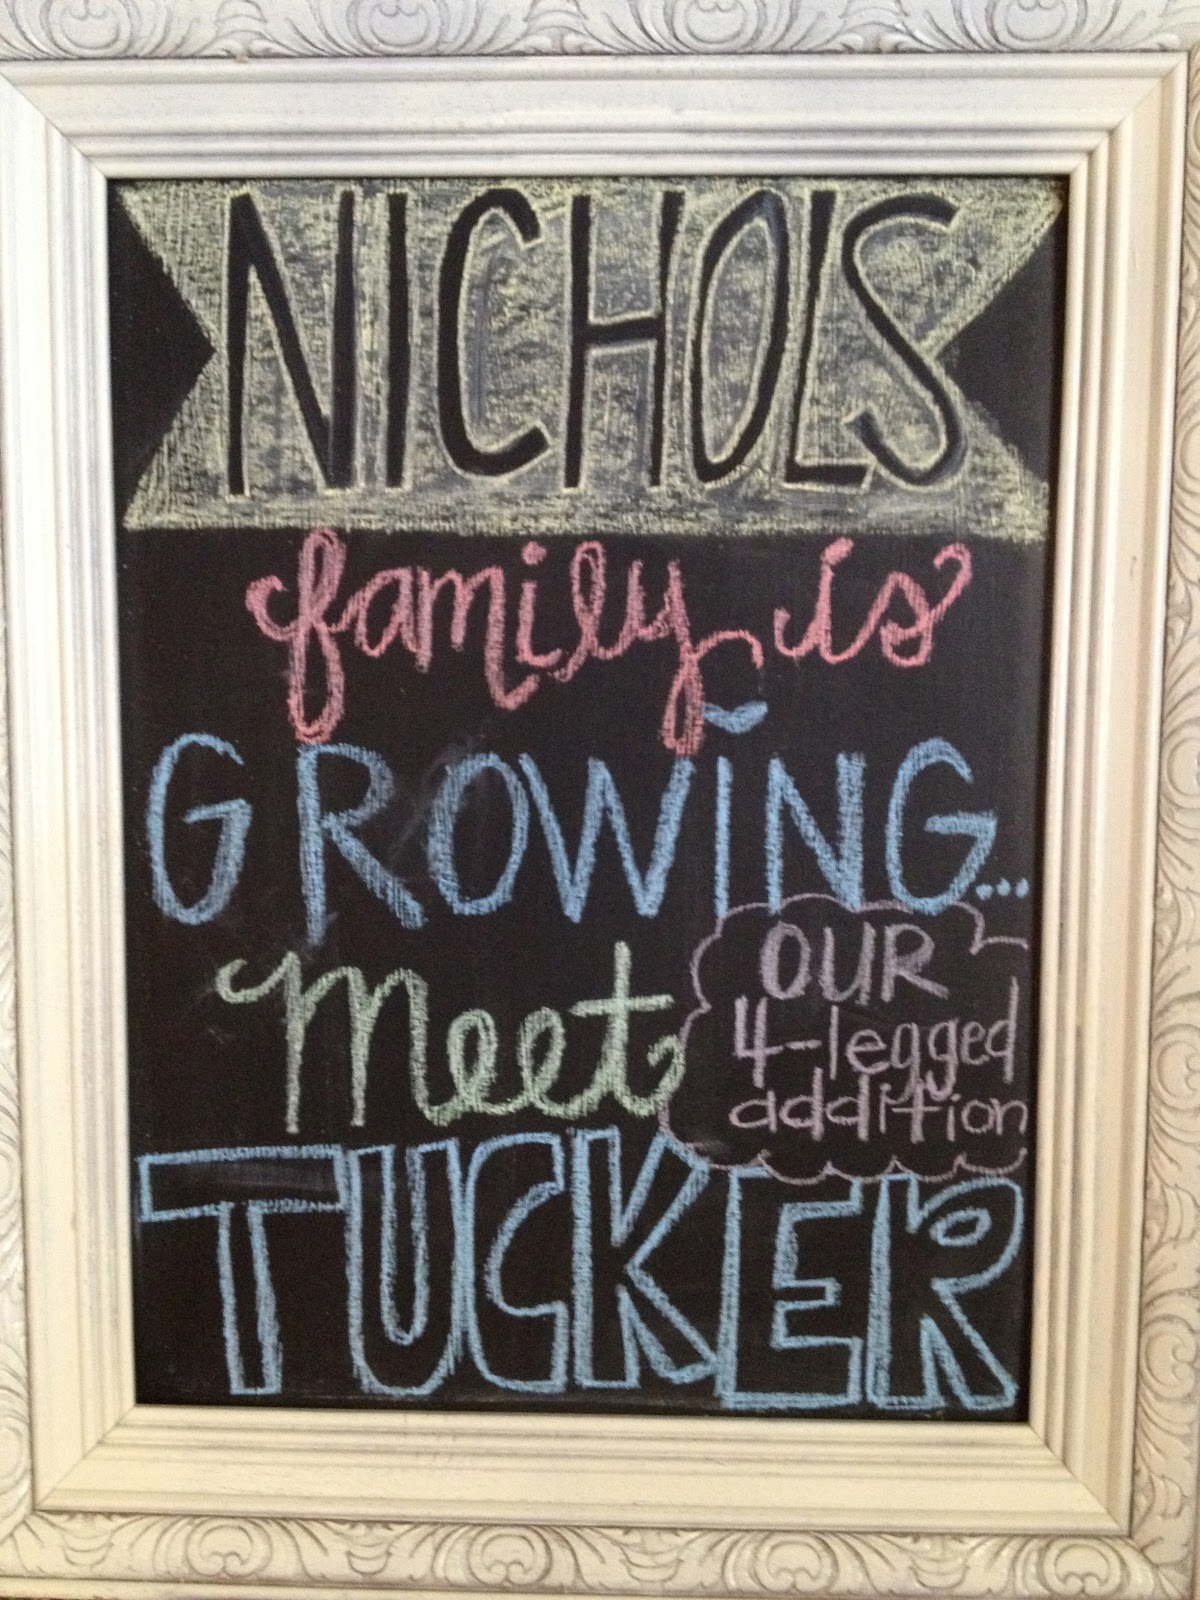 NICHOLS
family is
GROWING...
meet
OUR
4-legged
addition
TUCKER